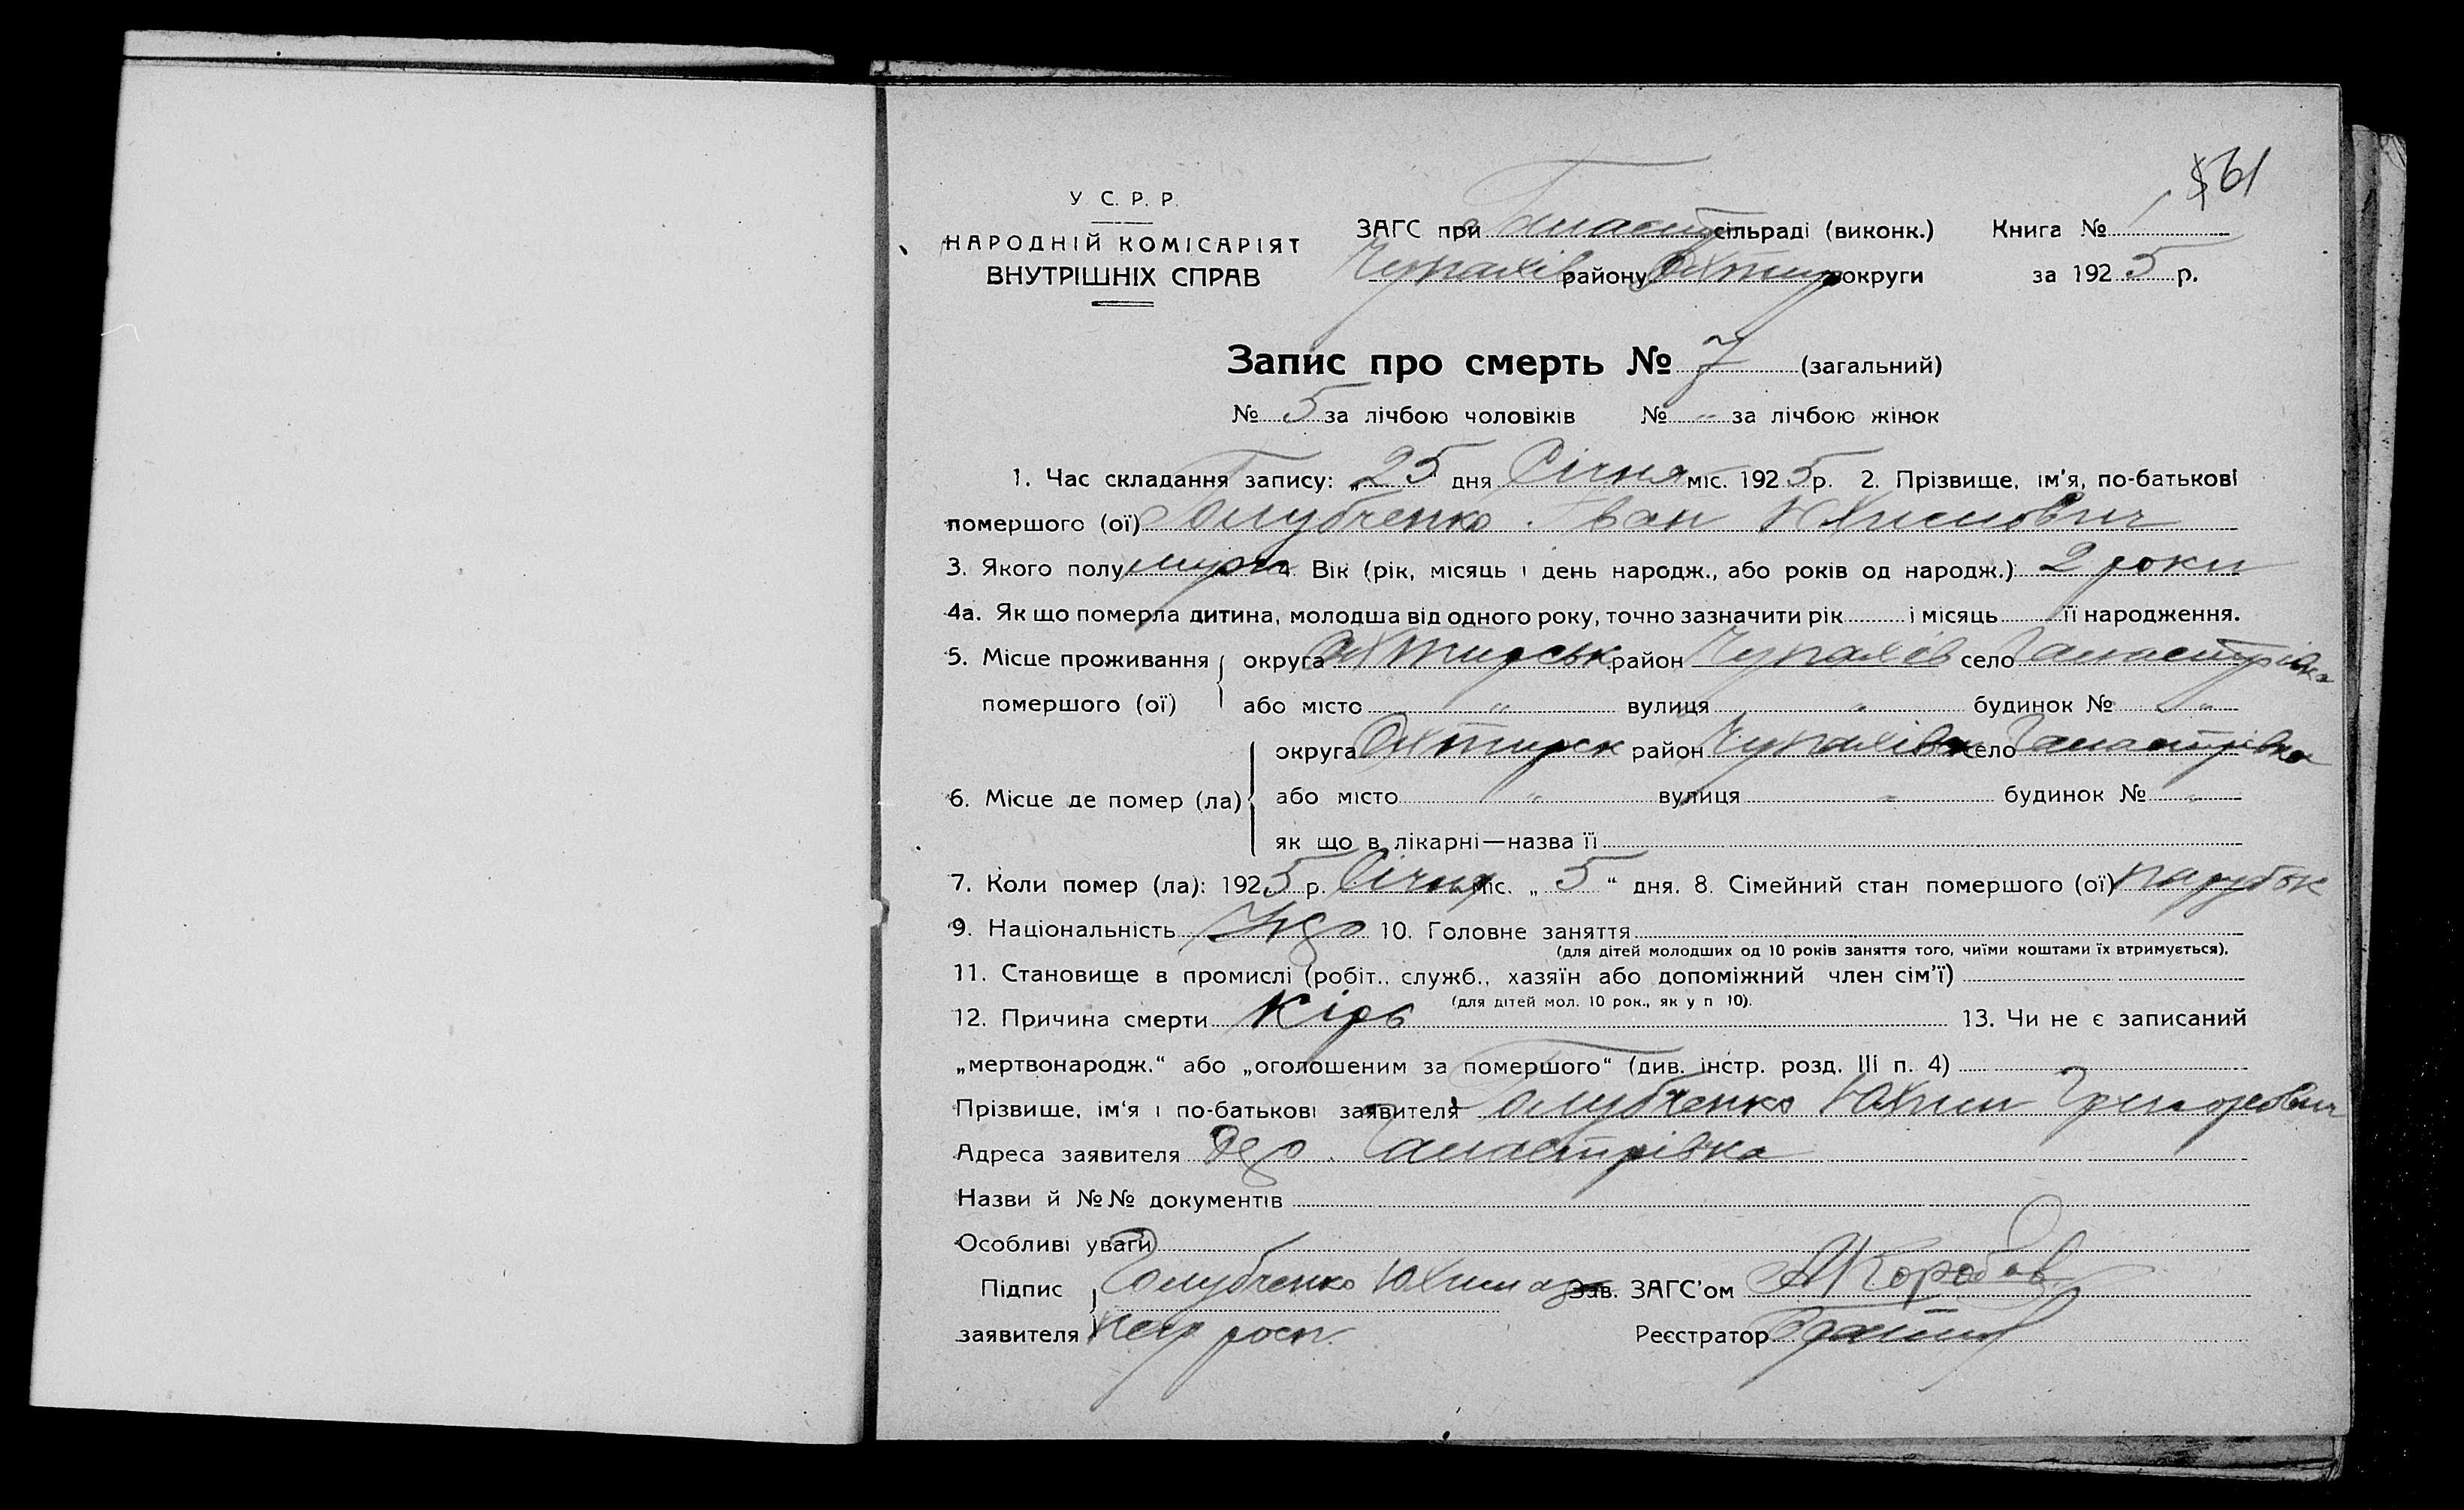 61
У С. Р. Р.
НАРОДНІЙ КОМІСАРІЯТ
ВНУТРІШНІХ СПРАВ
ЗАГС при сільраді (виконк.) Книга № 1
Чупахів району Охтир округи за 1925 р.
Запис про смерть № 7 (загальний)
№ 5 за лічбою чоловіків № " за лічбою жінок
1. Час складання запису: „25" дня Січня міс. 1925 р. 2. Прізвище, ім'я, по-батькові
помершого (ої) Голубченко Іван Юхимович
3. Якого полу 4. Вік (рік, місяць і день народж., або років од народж.) 2 роки
4а. Як що померла дитина, молодша від одного року, точно зазначити рік і місяць її народження.
5. Місце проживання округа Охтирськ район Чупахів село
помершого (ої) або місто " вулиця " будинок № "
округа Охтирск район Чупахівк село
6. Місце де помер (ла) або місто " вулиця " будинок № "
як що в лікарні—назва її
7. Коли помер (ла): 1925 р. Січня міс. „5" дня. 8. Сімейний стан помершого (ої) парубок
9. Національність Укр 10. Головне заняття
(для дітей молодших од 10 років заняття того, чиїми коштами їх втримується).
11. Становище в промислі (робіт., служб., хазяїн або допоміжний член сім'ї)
(для дітей мол. 10 рок., як у п 10).
12. Причина смерти Кірь 13. Чи не є записаний
„мертвонародж." або „оголошеним за помершого" (див. інстр. розд. III п. 4)
Прізвище, ім'я і по-батькові заявителя Голубченко Юхим Григорович
Адреса заявителя
Назви й №№ документів
Особливі уваги
Підпис Голубченко Юхим а Зав. ЗАГС'ом АКоробов
заявителя росп. Реєстратор